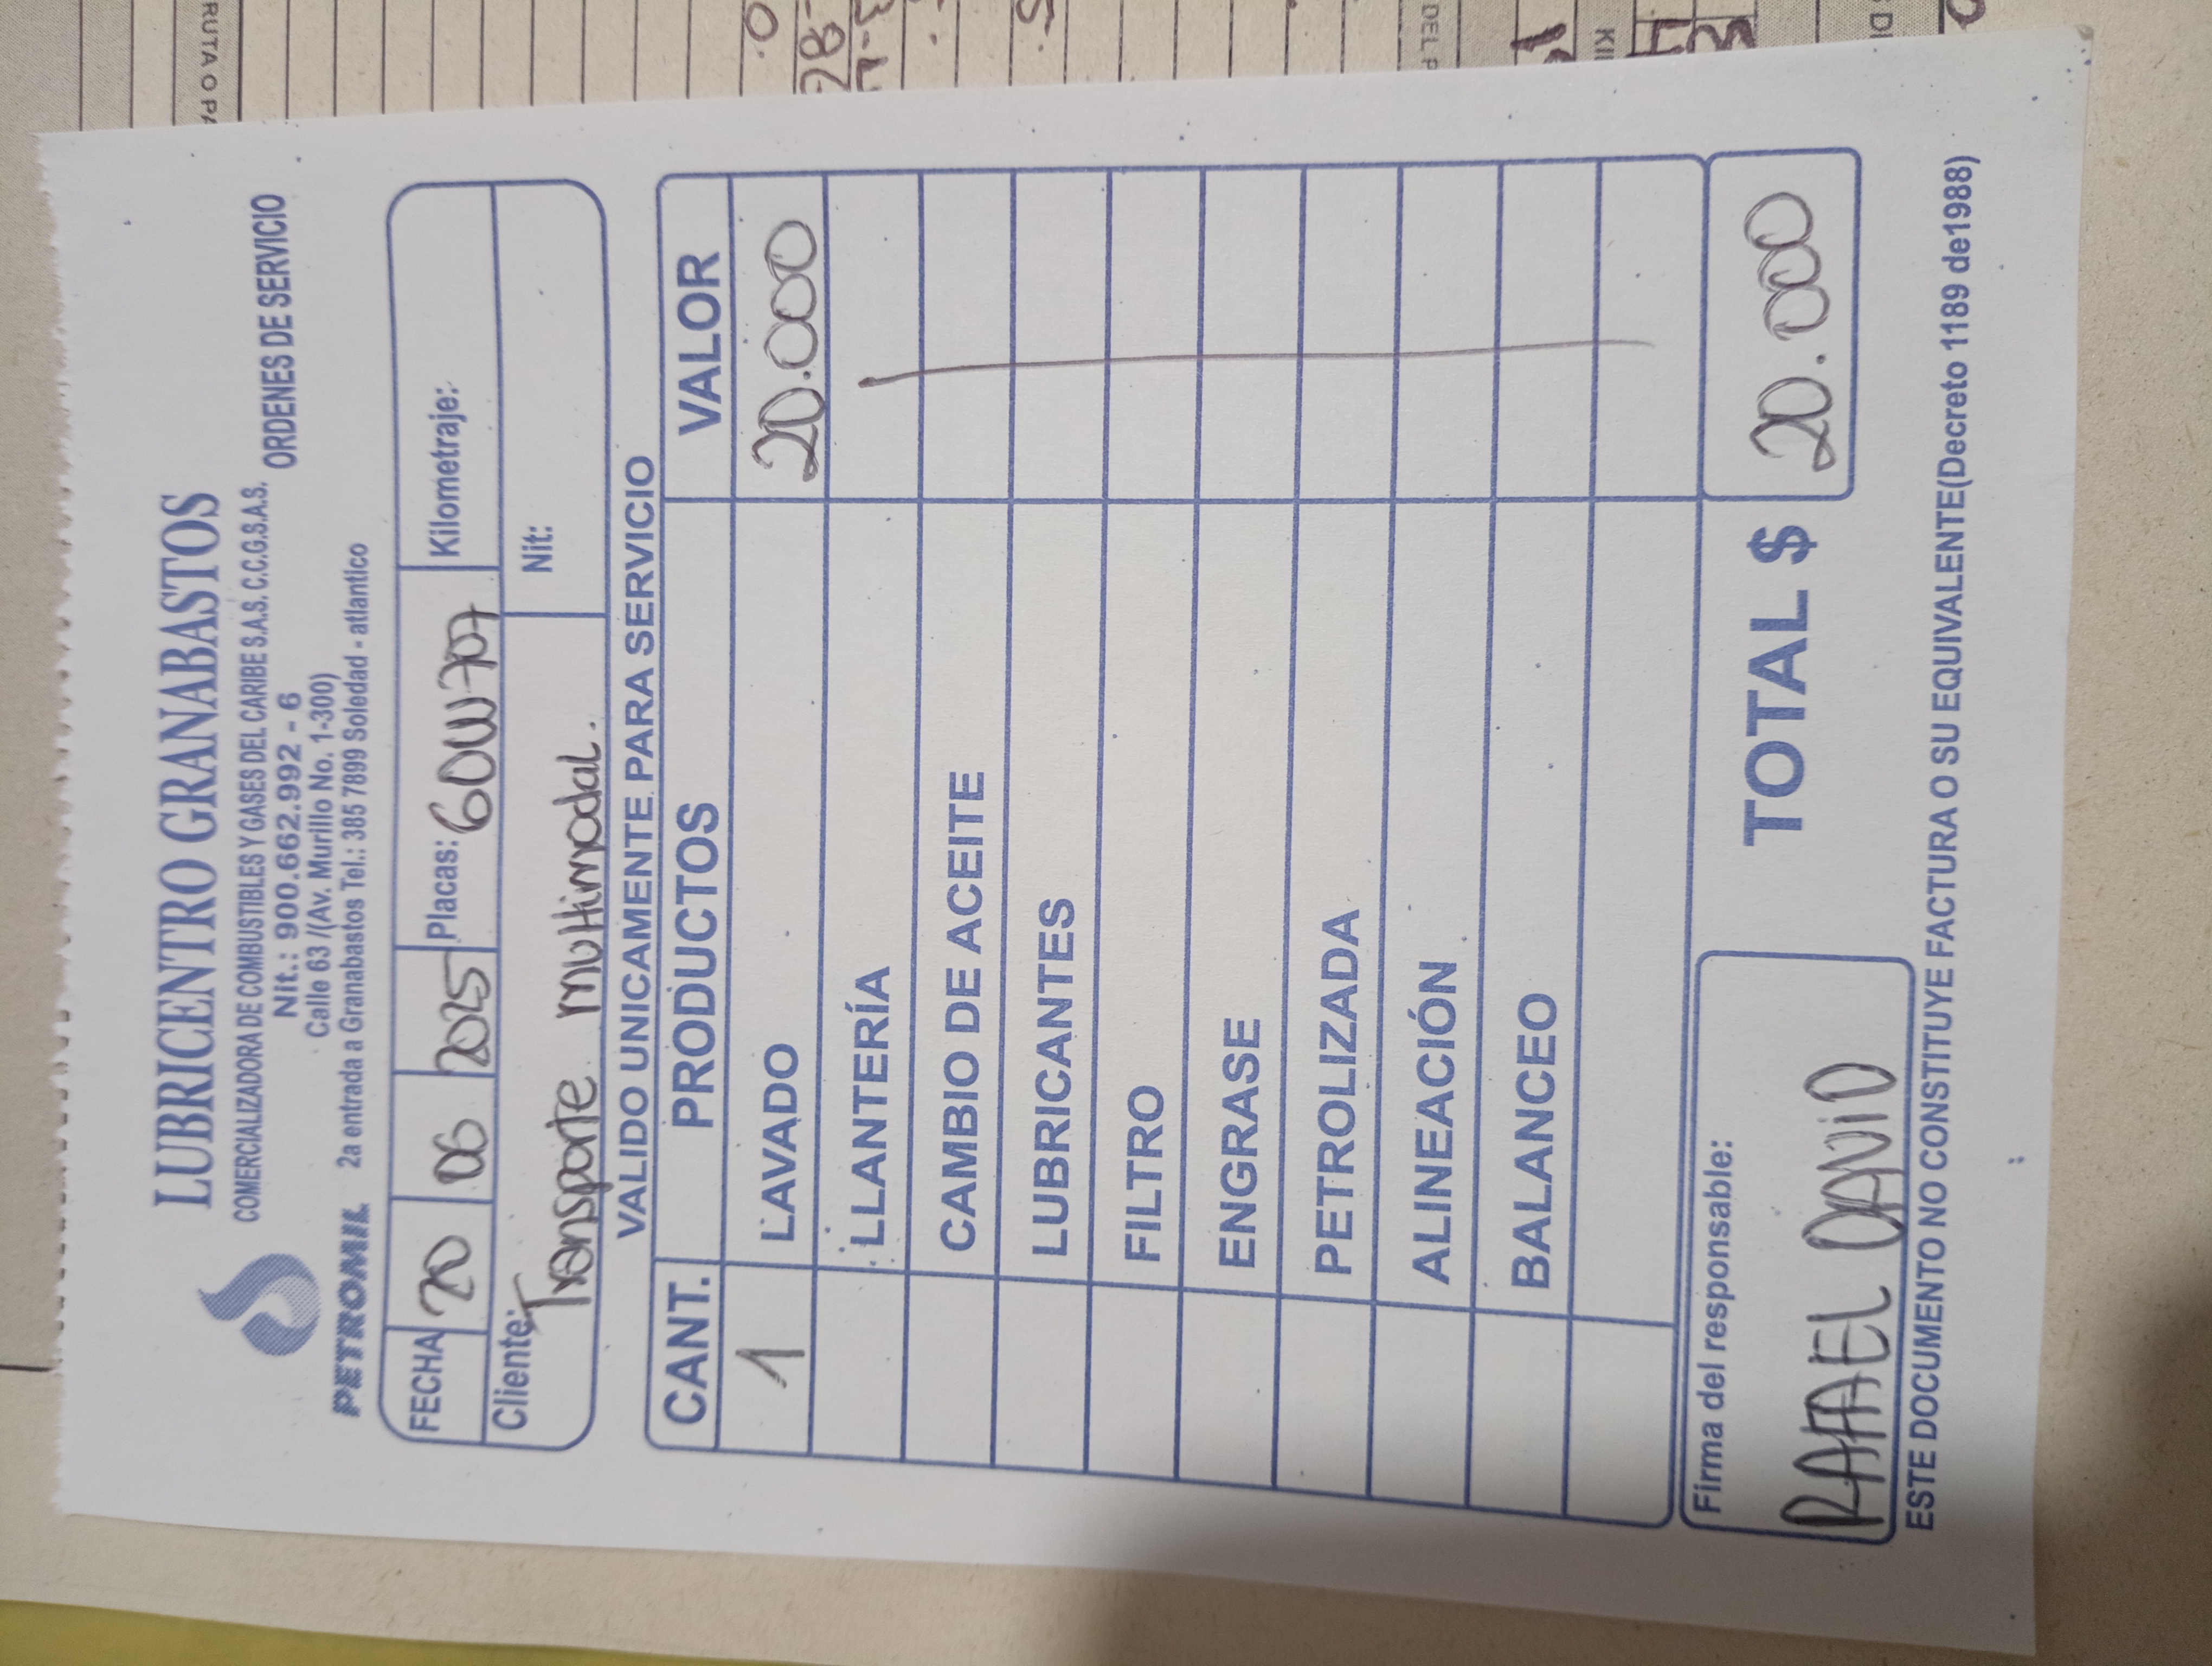 LUBRICENTRO GRANABASTOS
COMERCIALIZADORA DE COMBUSTIBLES Y GASES DEL CARIBE S.A.S. C.C.G.S.A.S.
Nit.: 900.662.992 - 6
ORDENES DE SERVICIO
Calle 63 /(Av. Murillo No. 1-300)
PETROMIL 2a entrada a Granabastos Tel.: 385 7899 Soledad - atlantico
FECHA 20 06 2025 Placas: GOW707 Kilometraje:
Cliente: Transporte multimodal. Nit:
VALIDO UNICAMENTE PARA SERVICIO
CANT. PRODUCTOS VALOR
1 LAVADO 20.000
LLANTERÍA
CAMBIO DE ACEITE
LUBRICANTES
FILTRO
ENGRASE
PETROLIZADA
ALINEACIÓN
BALANCEO
Firma del responsable:
TOTAL $ 20.000
RAFAEL DAVID
ESTE DOCUMENTO NO CONSTITUYE FACTURA O SU EQUIVALENTE(Decreto 1189 de1988)
RUTA O PA
DEL P